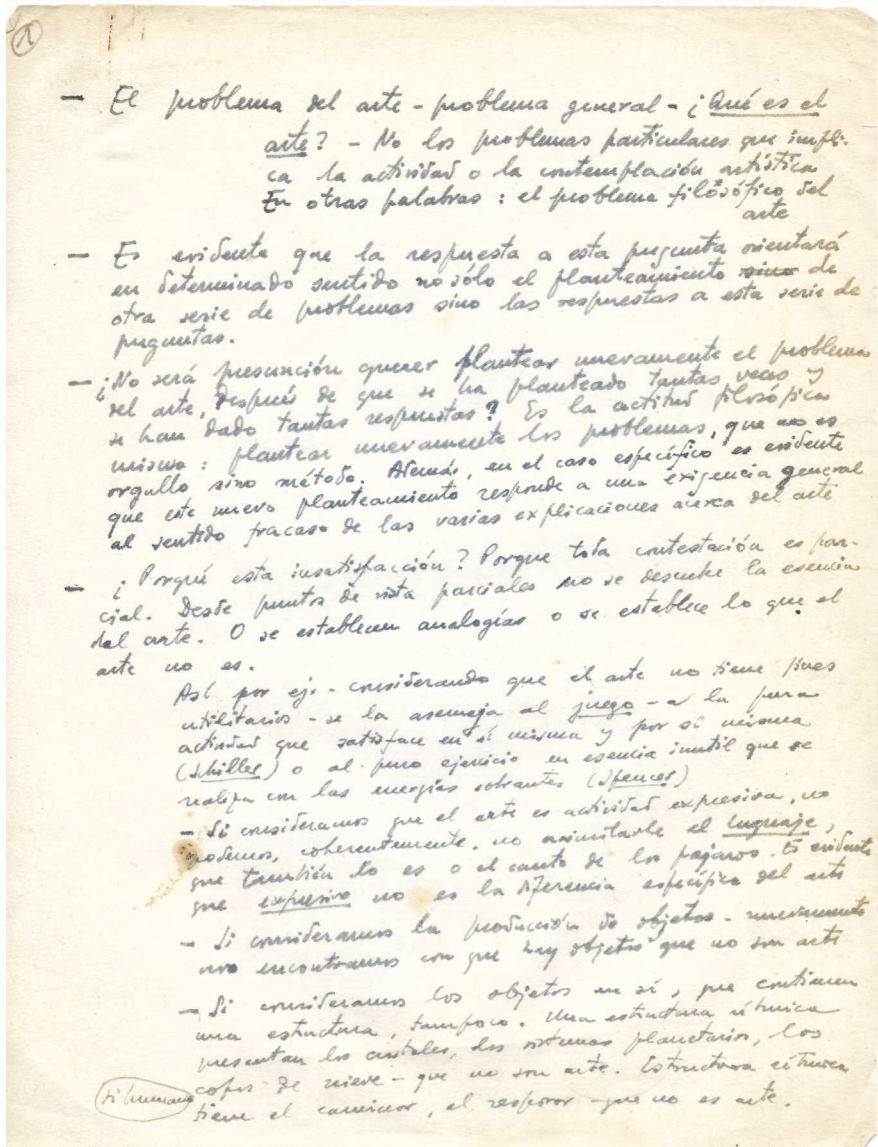 1
- El problema del arte - problema general - ¿Qué es el
arte? - No los problemas particulares que impli-
ca la actividad o la contemplación artística
En otras palabras : el problema filosófico del
arte
- Es evidente que la respuesta a esta pregunta orientará
en determinado sentido no sólo el planteamiento sino de
otra serie de problemas sino las respuestas a esta serie de
preguntas.
- ¿No será presunción querer plantear nuevamente el problema
del arte, después de que se ha planteado tantas veces y
se han dado tantas respuestas? Es la actitud filosófica
misma : plantear nuevamente los problemas, que no es
orgullo sino método. Además, en el caso específico es evidente
que este nuevo planteamiento responde a una exigencia general
al sentido fracaso de las varias explicaciones acerca del arte
- ¿Porqué esta insatisfacción? Porque toda contestación es par-
cial. Desde puntos de vista parciales no se descubre la esencia
del arte. O se establecen analogías o se establece lo que el
arte no es.
Así por ej. - considerando que el arte no tiene fines
utilitarios - se la asemeja al juego - a la pura
actividad que satisface en sí misma y por sí misma
(Schiller) o al puro ejercicio en esencia inutil que se
realiza con las energías sobrantes (Spencer)
- Si consideramos que el arte es actividad expresiva, no
podemos, coherentemente, no asimilarle el lenguaje,
que también lo es o el canto de los pájaros. Es evidente
que expresivo no es la diferencia específica del arte
- Si consideramos la producción de objetos - nuevamente
nos encontramos con que hay objetos que no son arte
- Si consideramos los objetos en sí, que contienen
una estructura, tampoco. Una estructura rítmica
presentan los cristales, los sistemas planetarios, los
copos de nieve - que no son arte. Estructura rítmica
tiene el caminar, el respirar - que no es arte.
humano